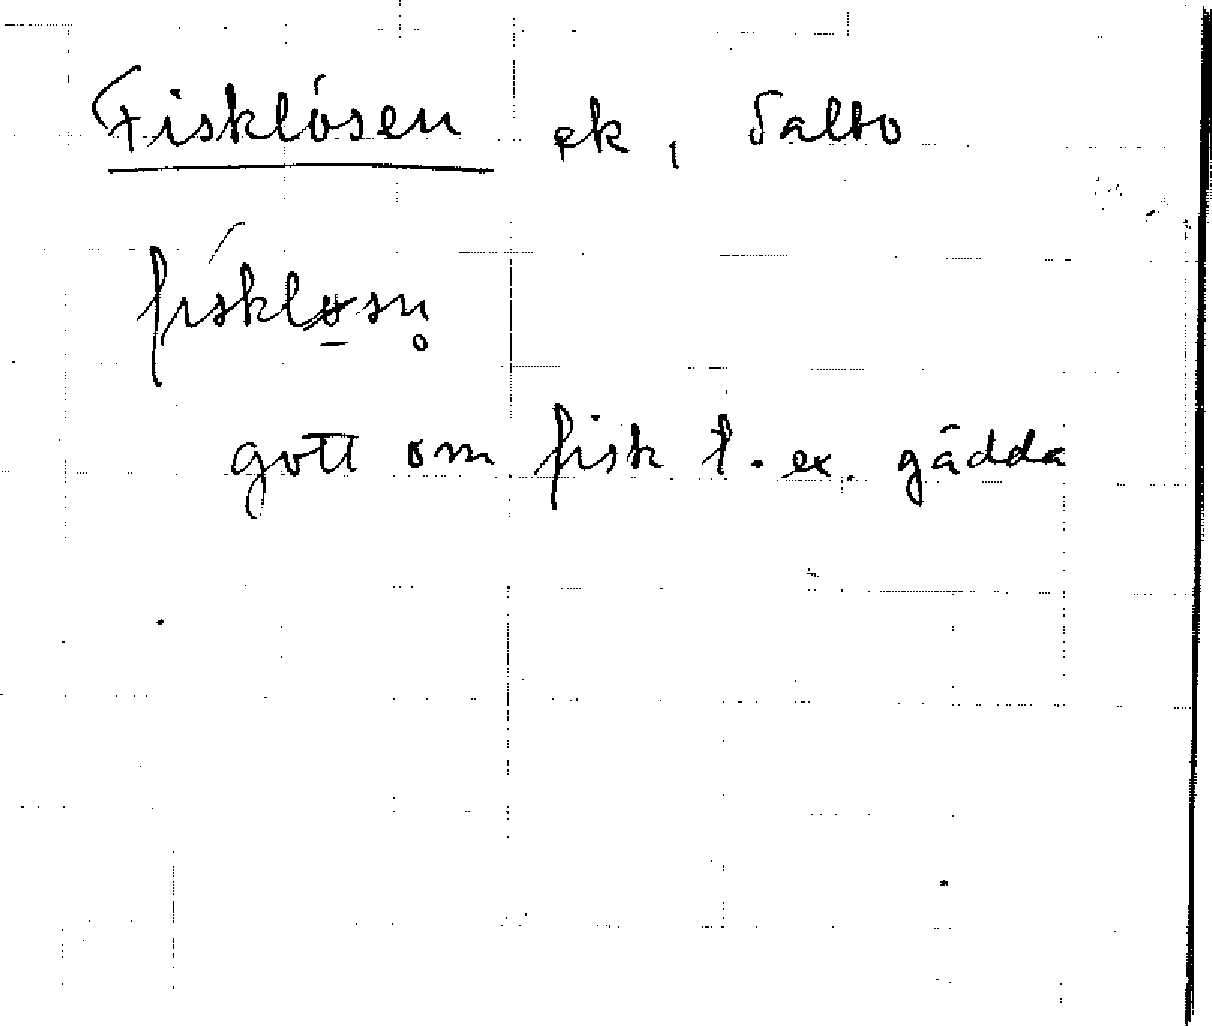 Fisklösen ek, Salbo
fiskløsn̥
gott om fisk t. ex. gädda